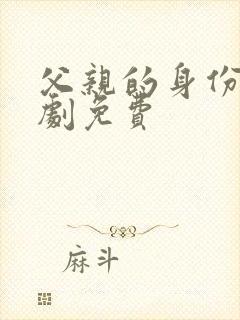 父親的身份
劇免費
麻斗